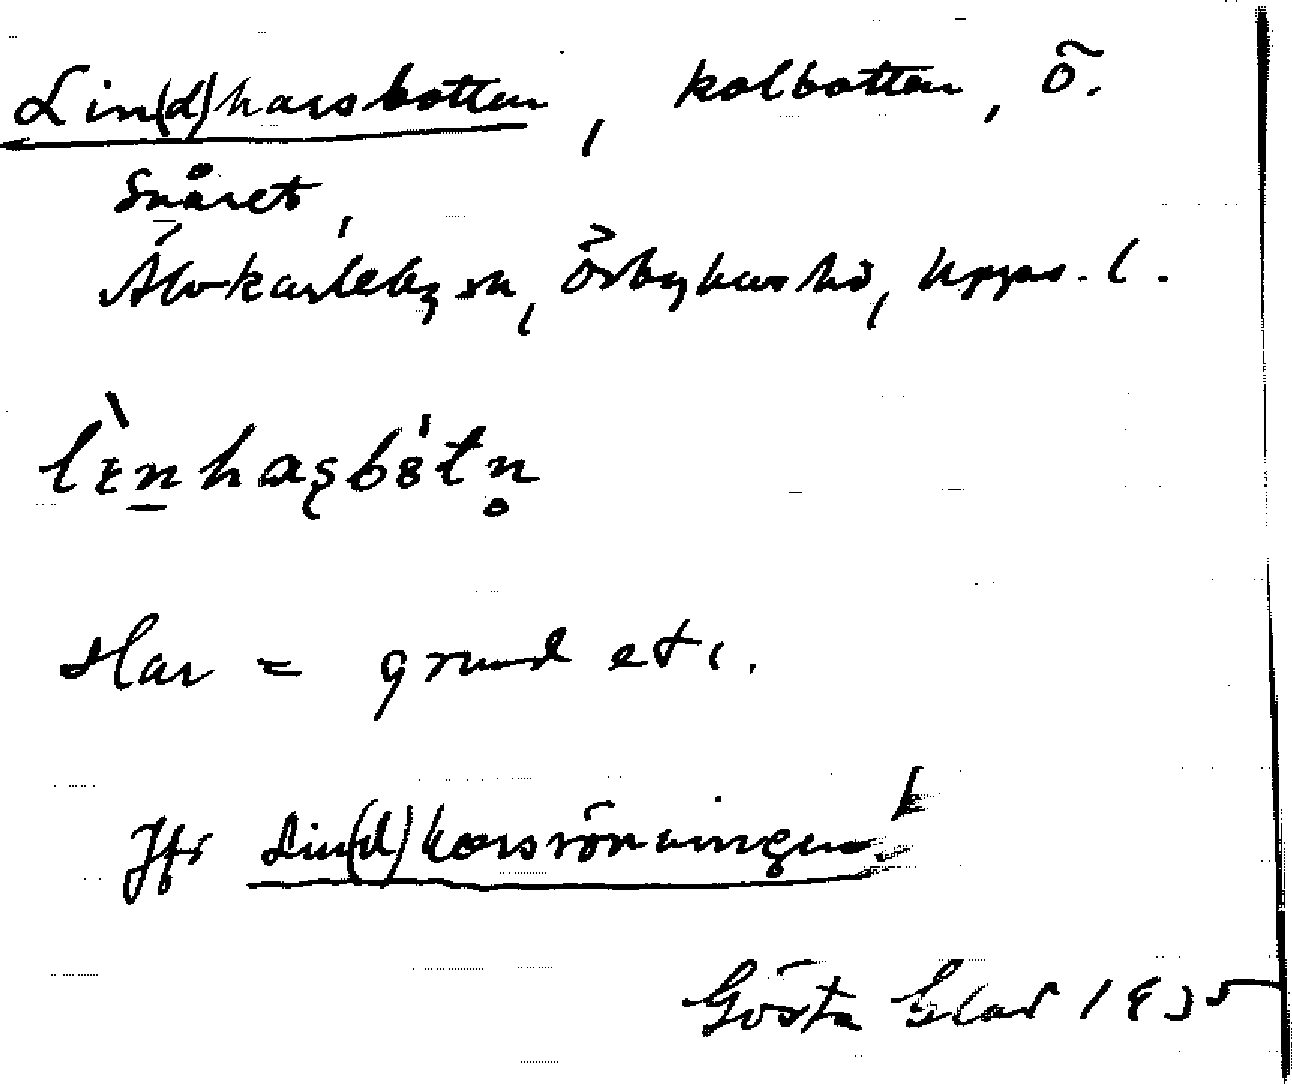 Lin(d)harsbotten, kolbotten, ö.
Snåret,
Älvkarleby sn, Örbyhus hd, Upps. l.
lɪ̀n̠haʂbɵ́tn̥
Har = grund etc.
Jfr Lin(d)harsrönningen
Gösta Elar 1935